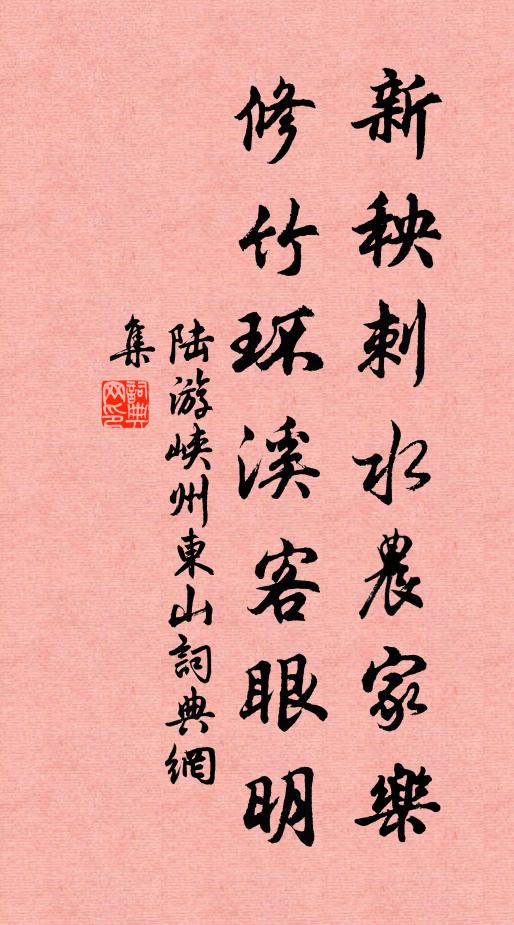 新秧刺水農家樂
修竹环溪客眼明
陆游峡州東山詞典網
集
詞典网印